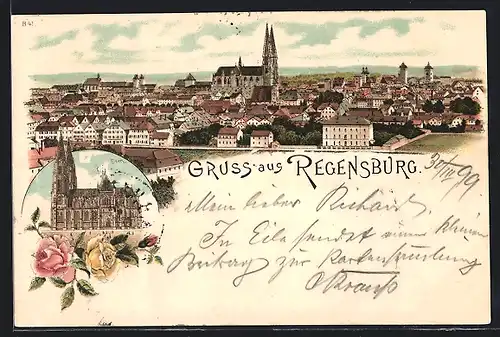 B 41.
GRUSS aus REGENSBURG.
Mein lieber Richard,
In Eile sendet einen kleinen
Beitrag zur Kartensammlung